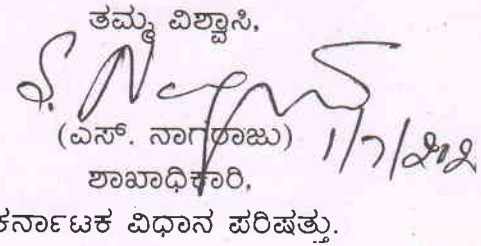 ತಮ್ಮ ವಿಶ್ವಾಸಿ,
(ಎಸ್. ನಾಗರಾಜು)
ಶಾಖಾಧಿಕಾರಿ,
ಕರ್ನಾಟಕ ವಿಧಾನ ಪರಿಷತ್ತು.